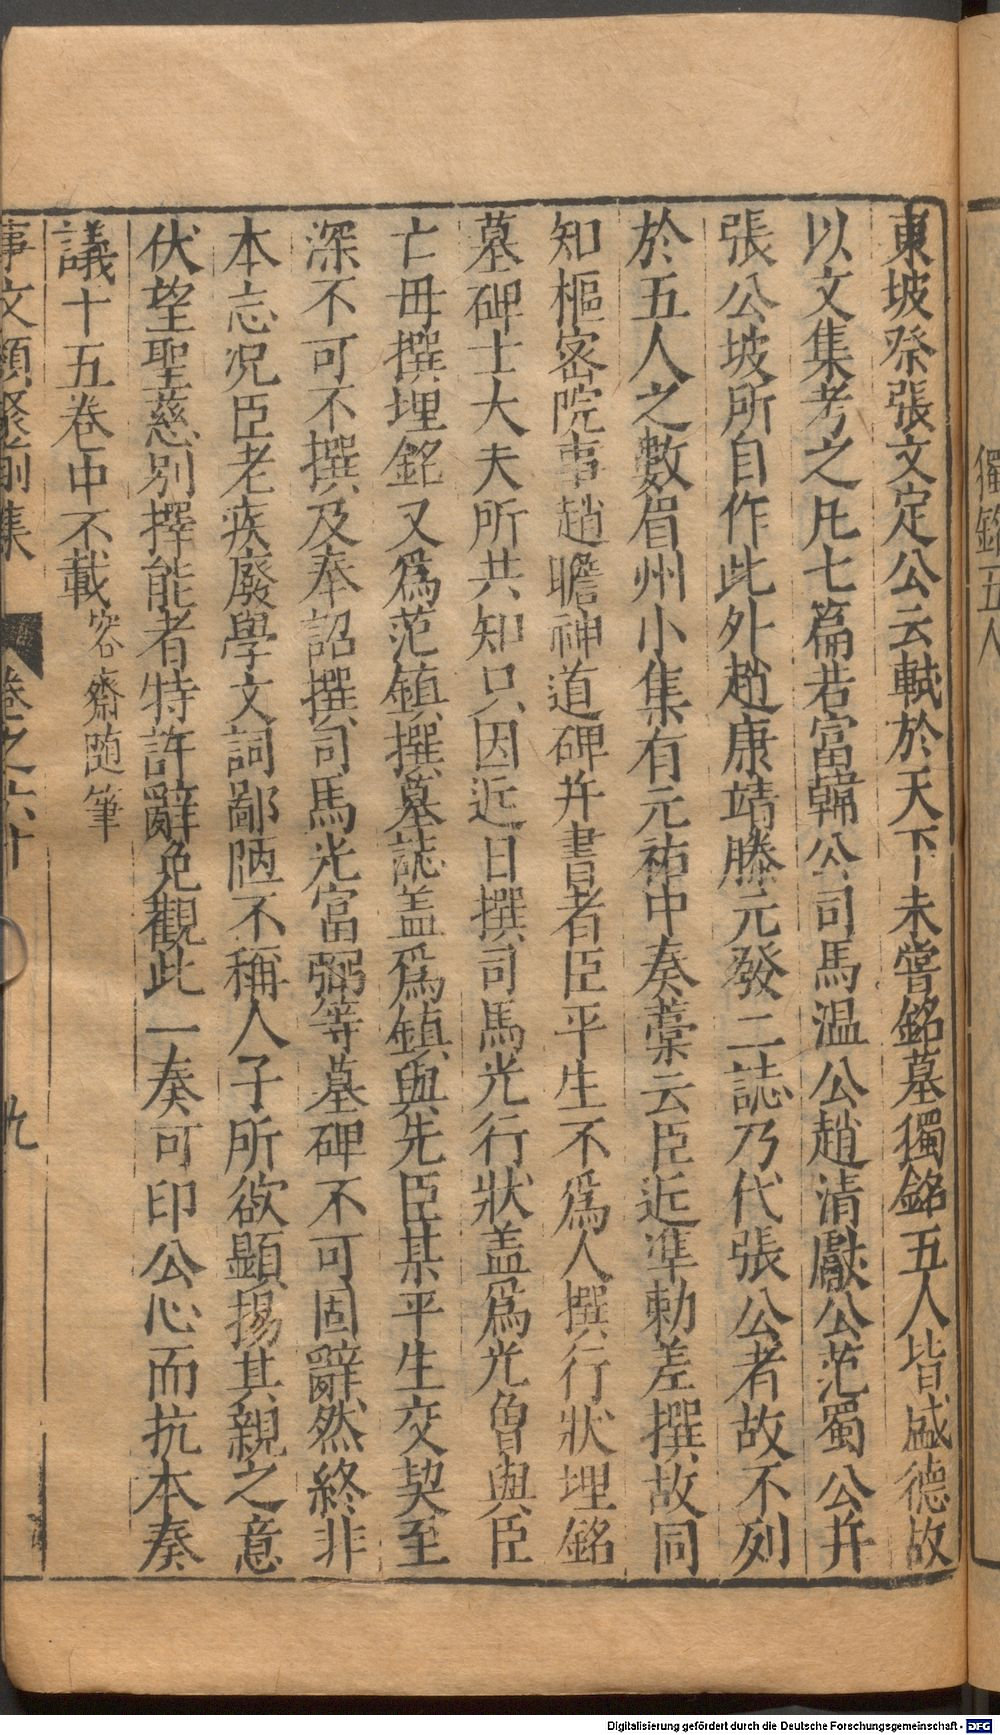 獨銘五人
東坡祭張文定公云軾於天下未嘗銘墓獨銘五人皆盛德故
以文集考之凡七篇若富韓公司馬温公趙清獻公范蜀公并
張公坡所自作此外趙康靖滕元發二誌乃代張公者故不列
於五人之數眉州小集有元祐中奏藁云臣近準勅差撰故同
知樞密院事趙瞻神道碑并書者臣平生不爲人撰行狀埋銘
墓碑士大夫所共知只因近日撰司馬光行狀盖爲光曾與臣
亡母撰埋銘又爲范鎮撰墓誌盖爲鎮與先臣某平生交契至
深不可不撰及奉詔撰司馬光富弼等墓碑不可固辭然終非
本忘况臣老疾廢學文詞鄙陋不稱人子所欲顯揚其親之意
伏望聖慈別擇能者特許辭免觀此一奏可印公心而抗本奏
議十五卷中不載容齋随筆
事文類聚前集 卷之六十 九
Digitalisierung gefördert durch die Deutsche Forschungsgemeinschaft - DFG